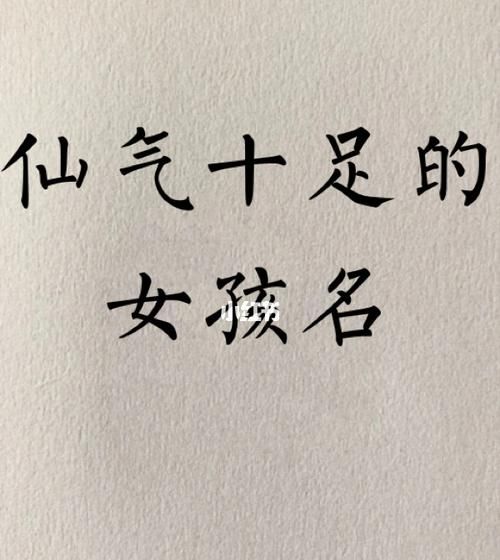 仙气十足的
女孩名
小红书